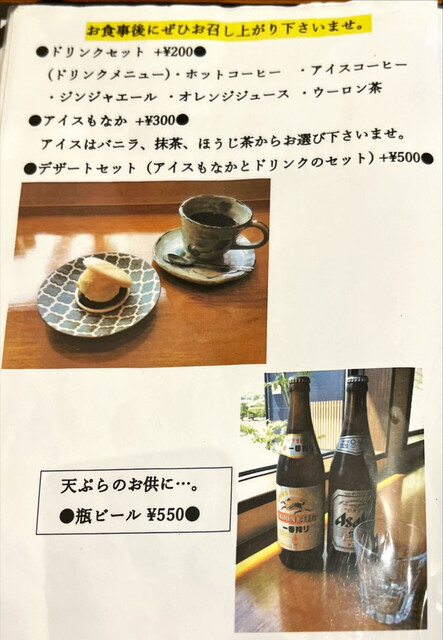 お食事後にぜひお召し上がり下さいませ。
●ドリンクセット +¥200●
(ドリンクメニュー)・ホットコーヒー ・アイスコーヒー
・ジンジャエール ・オレンジジュース ・ウーロン茶
●アイスもなか +¥300●
アイスはバニラ、抹茶、ほうじ茶からお選び下さいませ。
●デザートセット (アイスもなかとドリンクのセット) +¥500●
天ぷらのお供に…。
●瓶ビール ¥550●
一番搾り
Asahi